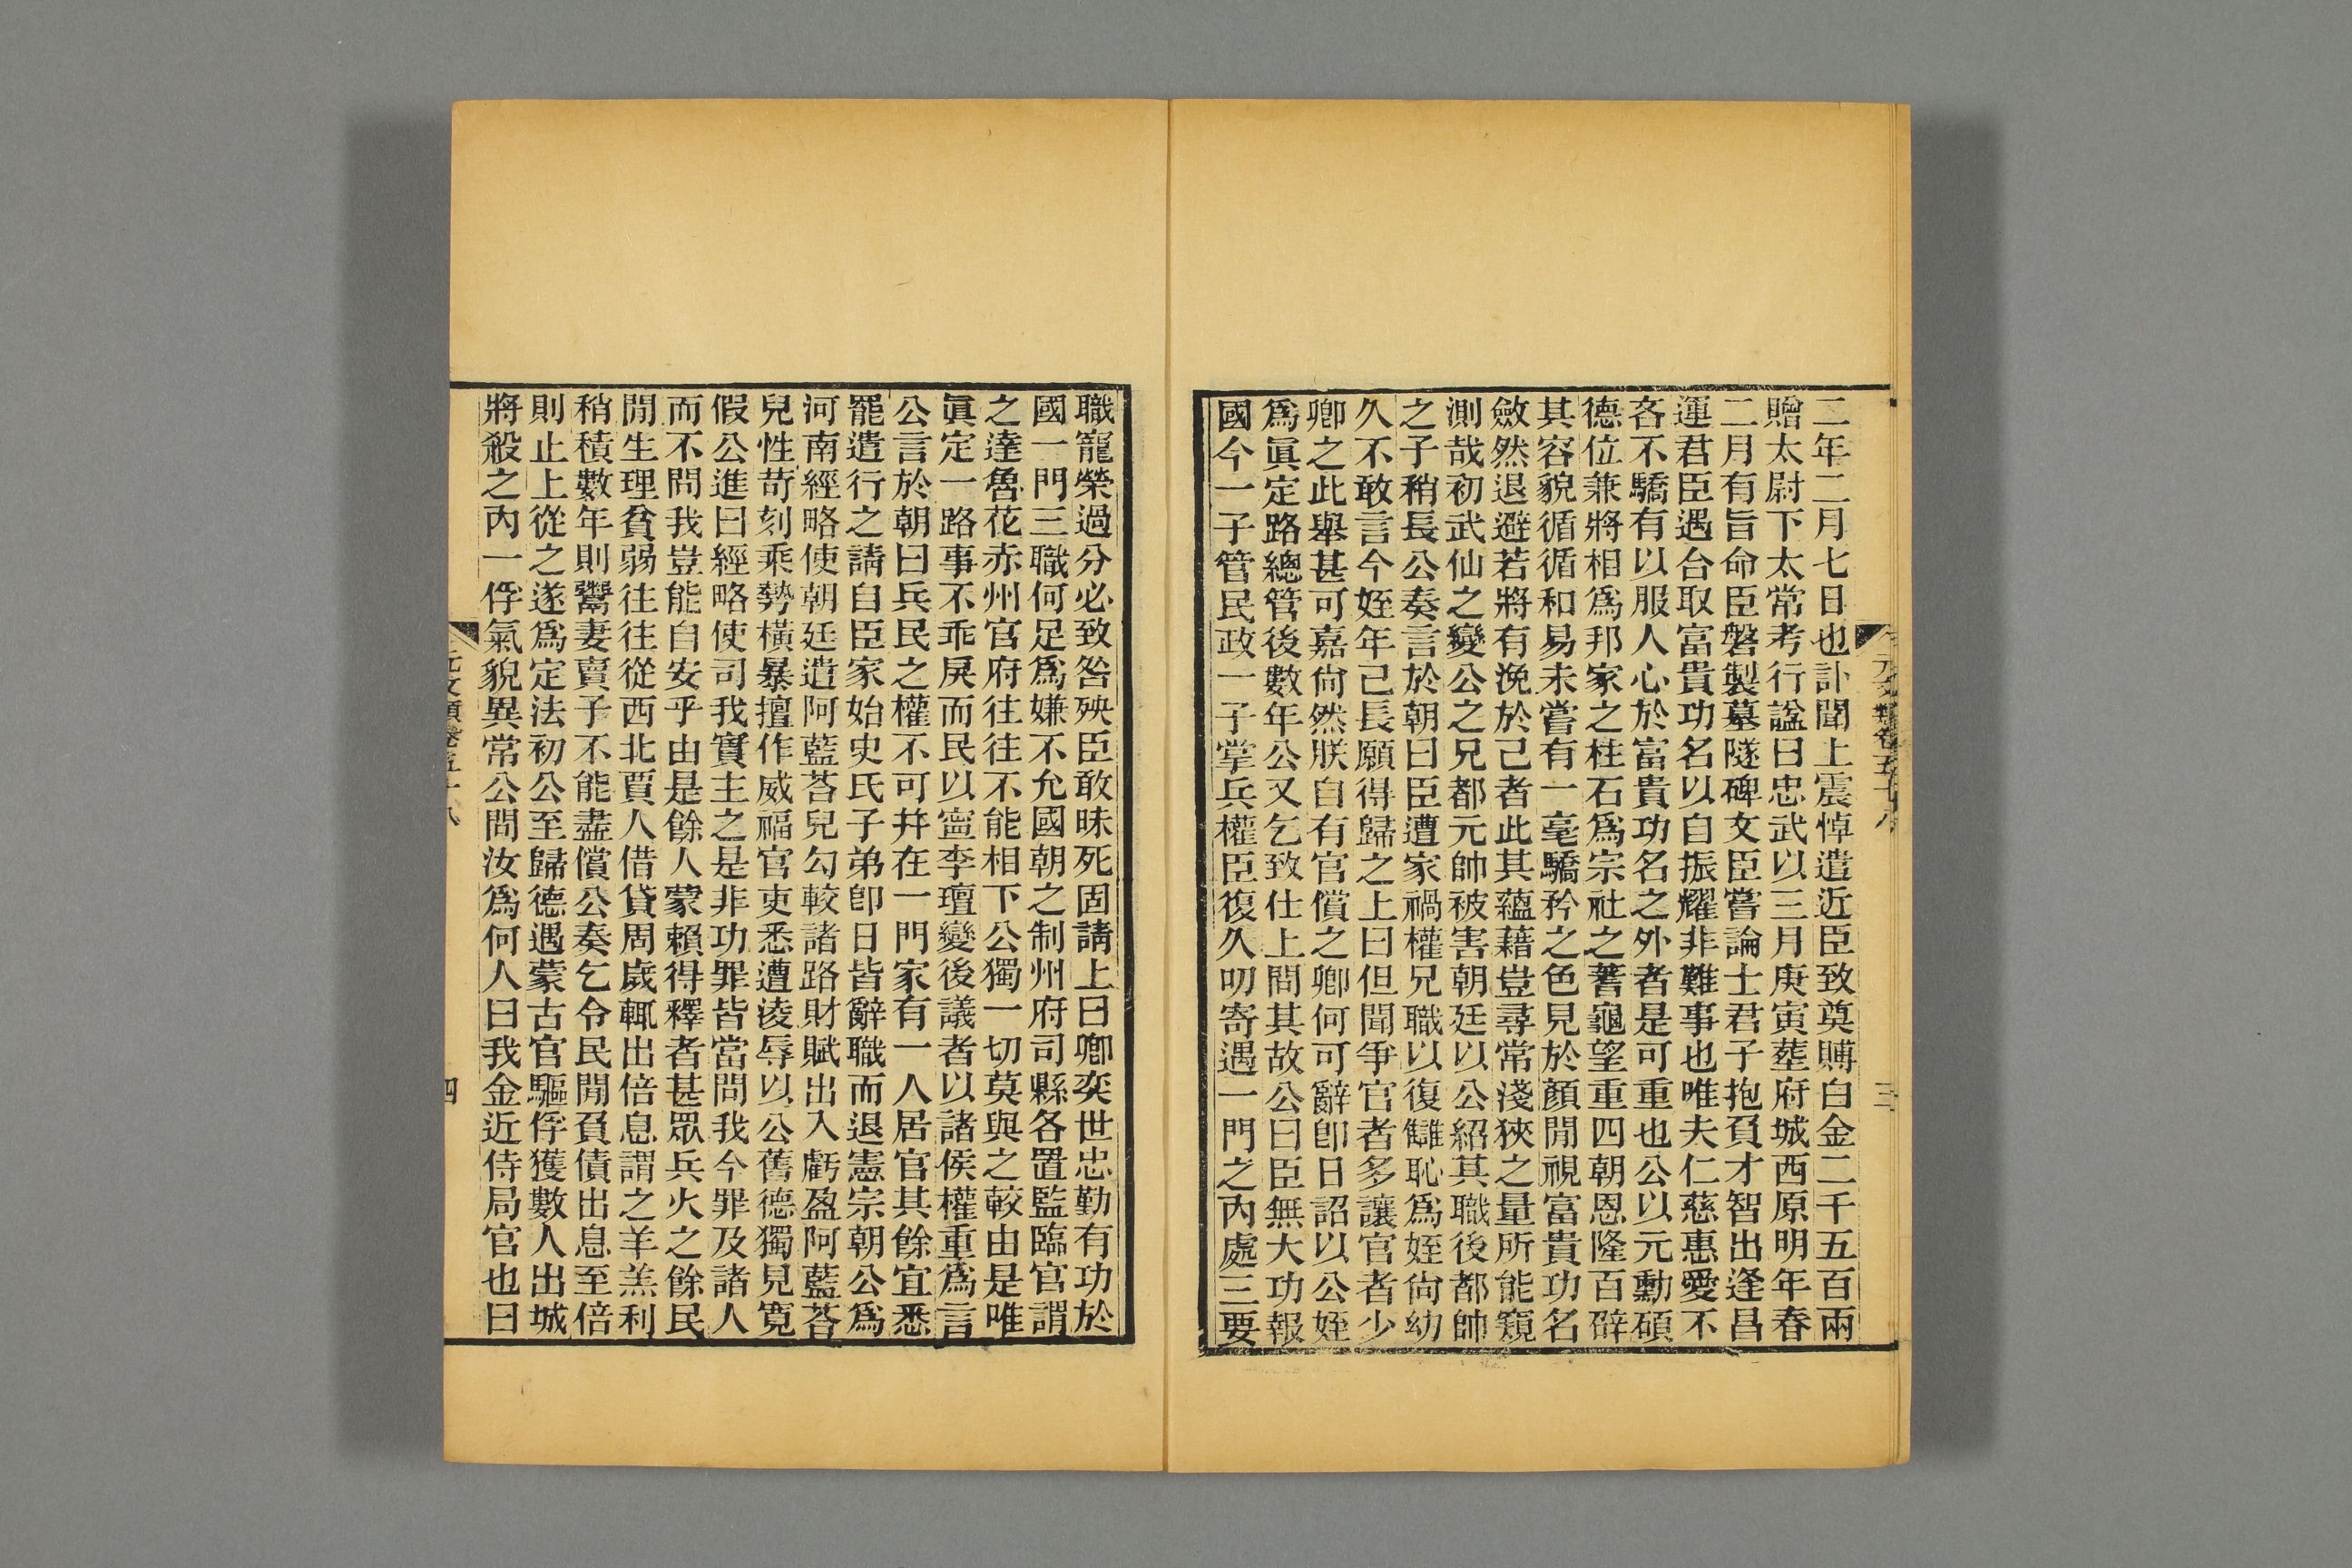 二年二月七日也訃聞上震悼遣近臣致奠賻白金二千五百兩
贈太尉下太常考行諡曰忠武以三月庚寅塟府城西原明年春
二月有旨命臣磐製墓隧碑文臣嘗論士君子抱負才智出逢昌
運君臣遇台取富貴功名以自振耀非難事也唯夫仁慈惠愛不
吝不驕有以服人心於富貴功名之外者是可重也公以元勳碩
德位兼將相爲邦家之柱石爲宗社之蓍龜望重四朝恩隆百辟
其容貌循循和易未嘗有一毫驕矜之色見於顏閒視富貴功名
斂然退避若將有浼於己者此其蘊藉豈尋常淺狹之量所能窺
測哉初武仙之變公之兄都元帥被害朝廷以公紹其職後都帥
之子稍長公奏言於朝曰臣遭家禍權兄職以復讎恥爲姪尙幼
久不敢言今姪年己長願得歸之上曰但聞爭官者多讓官者少
卿之此舉甚可嘉尙然朕自有官償之卿何可辭卽日詔以公姪
爲眞定路總管後數年公又乞致仕上問其故公曰臣無大功報
國今一子管民政一子掌兵權臣復久叨寄遇一門之內處三要
元文類卷五十八
三
職寵榮過分必致咎殃臣敢昧死固請上曰卿奕世忠勤有功於
國一門三職何足爲嫌不允國朝之制州府司縣各置監臨官謂
之達魯花赤州官府往往不能相下公獨一切莫與之較由是唯
眞定一路事不乖戾而民以寍李璮變後議者以諸侯權重爲言
公言於朝曰兵民之權不可幷在一門家有一人居官其餘宜悉
罷遣行之請自臣家始史氏子弟卽日皆辭職而退憲宗朝公爲
河南經略使朝廷遣阿藍荅兒勾較諸路財賦出入虧盈阿藍荅
兒性苛刻乘勢橫暴擅作威福官吏悉遭淩辱以公舊德獨見寬
假公進曰經略使司我實主之是非功罪皆當問我今罪及諸人
而不問我豈能自安乎由是餘人蒙賴得釋者甚眾兵火之餘民
閒生理貧弱往往從西北賈人借貸周歲輒出倍息謂之羊羔利
稍積數年則鬻妻賣子不能盡償公奏乞令民閒負債出息至倍
則止上從之遂爲定法初公至歸德遇蒙古官驅俘獲數人出城
將殺之內一俘氣貌異常公問汝爲何人曰我金近侍局官也曰
元文類卷五十八
四